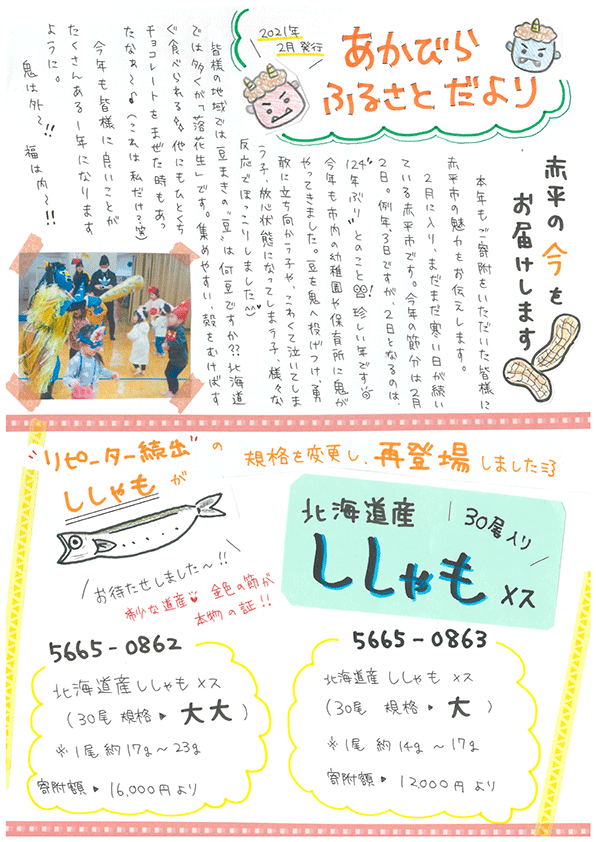 2021年
2月発行
あかびら
ふるさとだより
赤平の今を
お届けします
本年もご寄附をいただいた皆様に
赤平市の魅力をお伝えします。
2月に入り、まだまだ寒い日が続い
ている赤平市です。今年の節分は2月
2日。例年3日ですが、2日となるのは、
"124年ぶり"とのこと!珍しい年です
今年も市内の幼稚園や保育所に鬼が
やってきました。豆を鬼へ投げつけ、勇
敢に立ち向かう子や、こわくて泣いてしま
う子、放心状態になってしまう子、様々な
反応でほっこりしました
皆様の地域では豆まきの"豆"は何豆ですか??北海道
では多くが「落花生」です。集めやすい、殻をむけばす
ぐ食べられる 他にもひとくち
チョコレートをまぜた時もあっ
たなぁ~♪(これは私だけ?笑)
今年も皆様に良いことが
たくさんある1年になります
ように。
鬼は外~!! 福は内~!!
"リピーター続出"の
ししゃもが
規格を変更し、再登場しました
北海道産
30尾入り
ししゃもメス
お待たせしました~!!
希少な道産 金色の節が
本物の証!!
5665-0862
北海道産ししゃもメス
(30尾 規格▶大大)
※1尾 約17g~23g
寄附額▶16,000円より
5665-0863
北海道産ししゃもメス
(30尾 規格▶大)
※1尾 約14g~17g
寄附額▶12,000円より